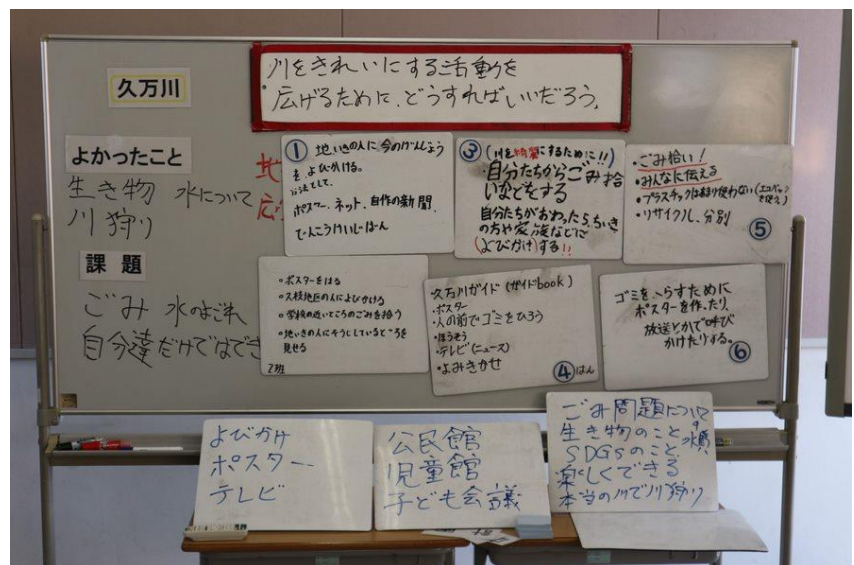 川をきれいにする活動を
広げるために、どうすればいいだろう。
久万川
よかったこと
生き物 水について
川狩り
課題
ごみ 水のよごれ
自分達だけではでき
地
広
① 地いきの人に今のげんじょう
をよびかける。
方法として、
ポスター、ネット、自作の新聞、
でんこうけいじばん
③ (川を綺麗にするために!!)
・自分たちからごみ拾
いなどをする
自分たちがおわったら、ちいき
の方や家族などに
(よびかけ)する!!
・ごみ拾い!
・みんなに伝える
・プラスチックはあまり使わない(エコバッグ
を使う)
・リサイクル、分別
⑤
・ポスターをはる
の人によびかける
・学校の近いところのごみを拾う
・地いきの人にそうじしているところを
見せる
2班
・久万川ガイド(ガイドbook)
・ポスター
・人の前でゴミをひろう
・ほうそう
・テレビ(ニュース)
・よみきかせ
④はん
ゴミをへらすために
ポスターを作ったり、
放送とかで呼び
かけたりする。
⑥
よびかけ
ポスター
テレビ
公民館
児童館
子ども会議
ごみ問題について
生き物のこと 水質
SDGsのこと
楽しくできる
本当の川で川狩り